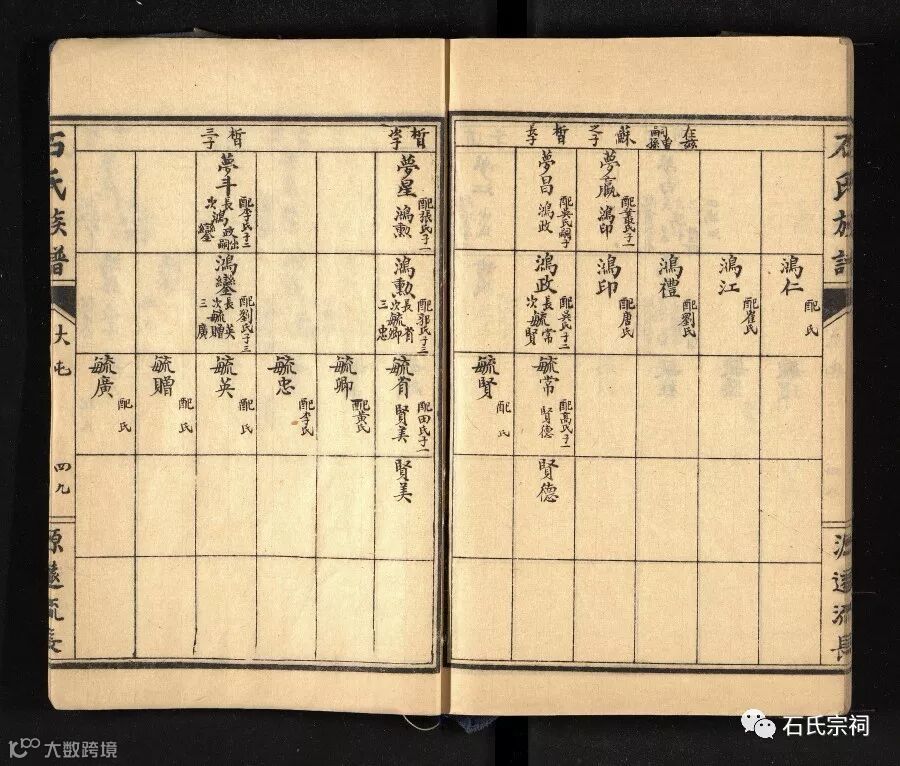 石氏族譜
源遠流長
鴻仁
配 氏
鴻江
配崔氏
鴻禮
配劉氏
蘇之子
夢瀛
配董氏子一
鴻印
鴻印
配唐氏
晳長子
夢昌
配吳氏嗣子
鴻政
鴻政
配吳氏子二
長毓常
次毓賢
毓常
配高氏子一
賢德
賢德
毓賢
配 氏
晳次子
夢星
配張氏子一
鴻勲
鴻勲
配郭氏子三
長毓省
次毓卿
三忠
毓省
配田氏子一
賢美
賢美
毓卿
配黃氏
毓忠
配李氏
晳三子
夢斗
配李氏子二
長鴻政出嗣
次鴻鑾
鴻鑾
配劉氏子三
長毓英
次毓贈
三廣
毓英
配 氏
毓贈
配 氏
毓廣
配 氏
石氏族譜
大屯
四九
源遠流長
石氏宗祠
大数跨境